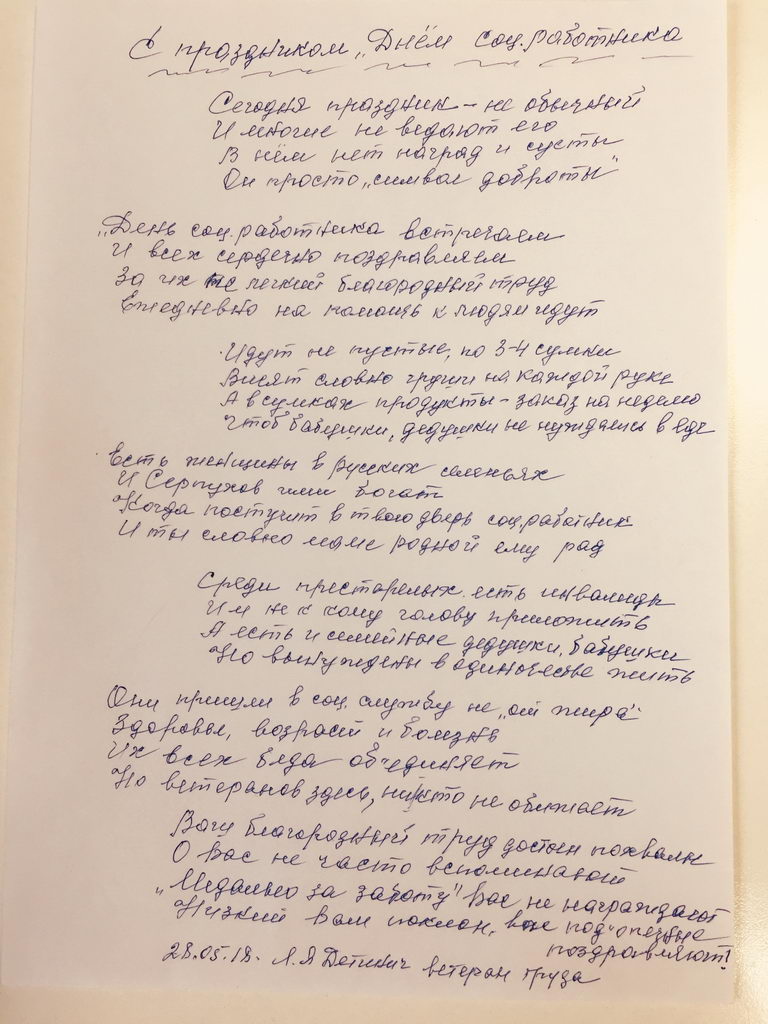 С праздником „Днём соц. работника
Сегодня праздник – не обычный
И многие не ведают его
В нём нет наград и сусты
Он просто „символ доброты"
„День соц. работника встречаем
И всех сердечно поздравляем
За их не легкий благородный труд
Ежедневно на помощь к людям идут
Идут не пустые, по 3-4 сумки
Висят словно груши на каждой руке
А в сумках продукты – заказ на неделю
Чтоб бабушки, дедушки не нуждались в еде
Есть женщины в русских селеньях
И Серпухов ими богат
Когда постучит в твою дверь соц. работник
И ты словно маме родной ему рад
Среди престарелых есть инвалиды
Им не к кому голову приложить
А есть и семейные дедушки, бабушки
Но вынуждены в одиночестве жить
Они пришли в соц. службу не „от жира"
Здоровье, возраст и болезнь
Их всех беда объединяет
Но ветеранов здесь, никто не обижает
Ваш благородный труд достоин похвалы
О Вас не часто вспоминают
„Медалью за заботу" Вас не награждают
Низкий Вам поклон, все под"опечные
поздравляют!
28.05.18. Л.Я ветеран труда